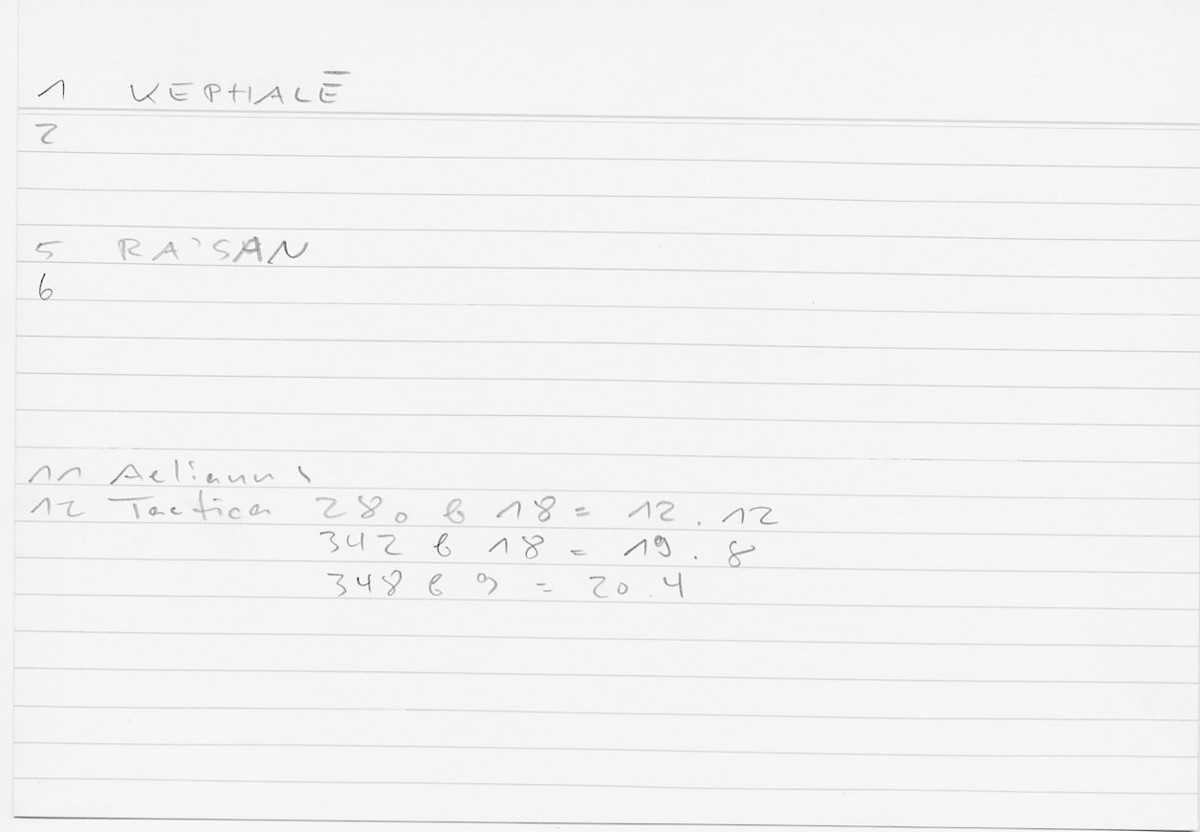 1 KEPHALĒ
2
5 RA'SAN
6
11 Aelianus
12 Tactica 280 b 18 = 12.12
342 b 18 = 19.8
348 b 9 = 20.4